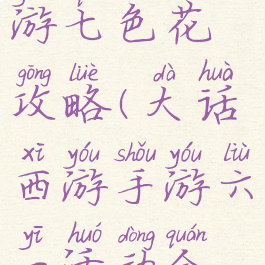 游七色花
gōng lüè dà huà
攻略(大话
xī yóu shǒu yóu liù
西游手游六
yī huó dòng quán
一活动全